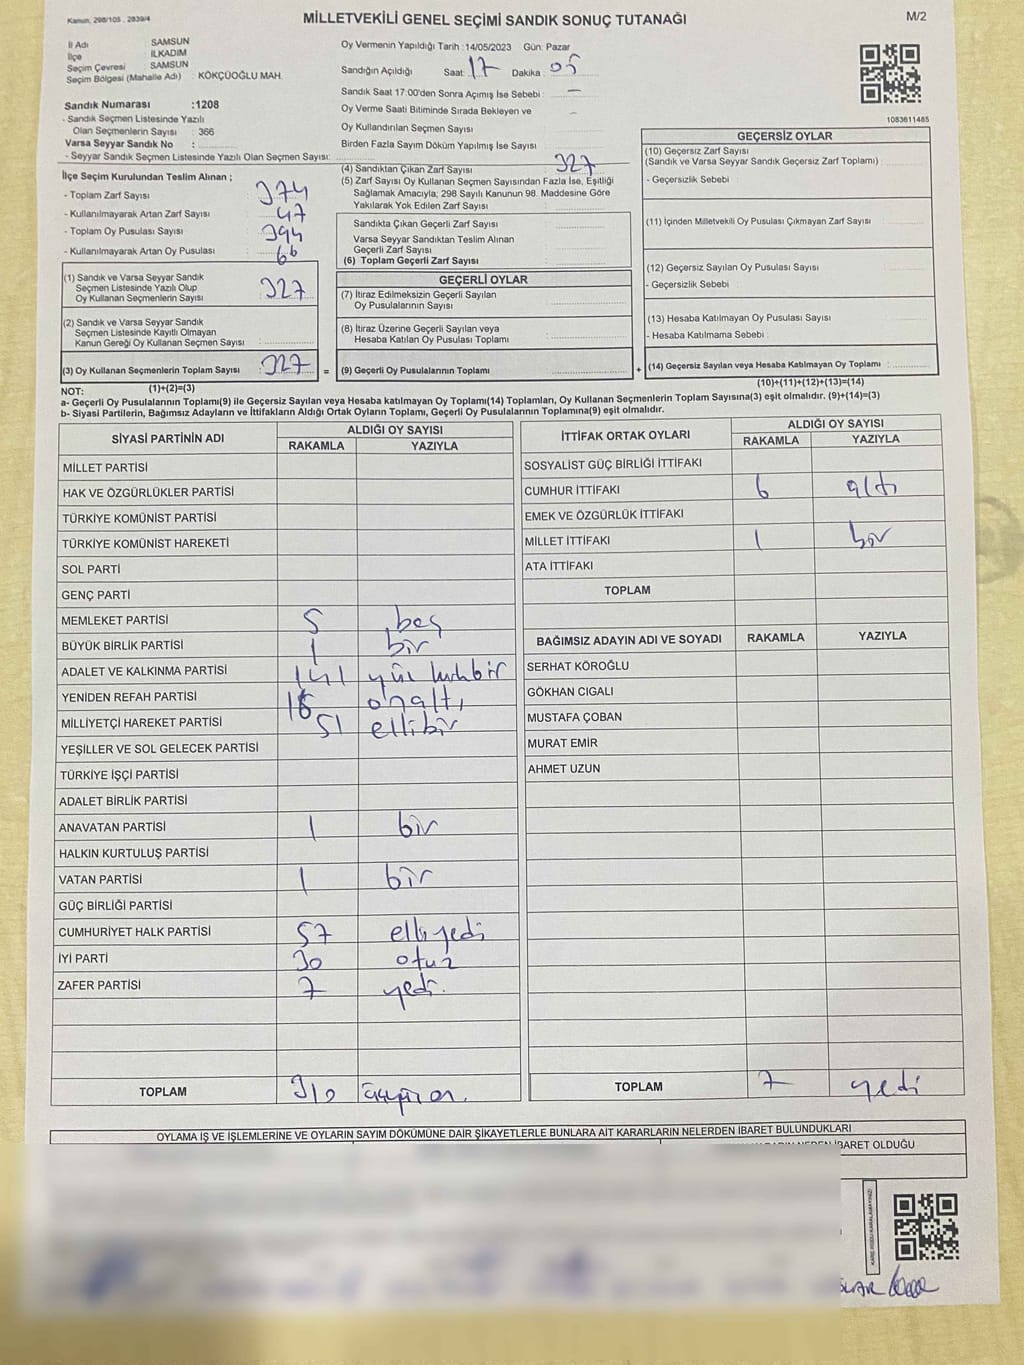 Kanun, 298/105 . 2839/4
MİLLETVEKİLİ GENEL SEÇİMİ SANDIK SONUÇ TUTANAĞI
M/2
İl Adı SAMSUN
İlçe İLKADIM
Seçim Çevresi SAMSUN
Seçim Bölgesi (Mahalle Adı) : KÖKÇÜOĞLU MAH.
Sandık Numarası :1208
- Sandık Seçmen Listesinde Yazılı
Olan Seçmenlerin Sayısı : 366
Varsa Seyyar Sandık No :
- Seyyar Sandık Seçmen Listesinde Yazılı Olan Seçmen Sayısı:
Oy Vermenin Yapıldığı Tarih :14/05/2023 Gün: Pazar
Sandığın Açıldığı Saat: 17 Dakika : 05
Sandık Saat 17:00'den Sonra Açımış İse Sebebi : —
Oy Verme Saati Bitiminde Sırada Bekleyen ve –
Oy Kullandırılan Seçmen Sayısı
Birden Fazla Sayım Döküm Yapılmış İse Sayısı
1083611485
İlçe Seçim Kurulundan Teslim Alınan ;
- Toplam Zarf Sayısı : 374
- Kullanılmayarak Artan Zarf Sayısı : 47
- Toplam Oy Pusulası Sayısı : 394
- Kullanılmayarak Artan Oy Pusulası : 66
(1) Sandık ve Varsa Seyyar Sandık
Seçmen Listesinde Yazılı Olup
Oy Kullanan Seçmenlerin Sayısı : 327
(2) Sandık ve Varsa Seyyar Sandık
Seçmen Listesinde Kayıtlı Olmayan
Kanun Gereği Oy Kullanan Seçmen Sayısı :
(3) Oy Kullanan Seçmenlerin Toplam Sayısı : 327 =
(4) Sandıktan Çıkan Zarf Sayısı : 327
(5) Zarf Sayısı Oy Kullanan Seçmen Sayısından Fazla İse, Eşitliği
Sağlamak Amacıyla, 298 Sayılı Kanunun 98. Maddesine Göre
Yakılarak Yok Edilen Zarf Sayısı :
Sandıkta Çıkan Geçerli Zarf Sayısı :
Varsa Seyyar Sandıktan Teslim Alınan
Geçerli Zarf Sayısı
(6) Toplam Geçerli Zarf Sayısı :
GEÇERLİ OYLAR
(7) İtiraz Edilmeksizin Geçerli Sayılan
Oy Pusulalarının Sayısı :
(8) İtiraz Üzerine Geçerli Sayılan veya
Hesaba Katılan Oy Pusulası Toplamı :
(9) Geçerli Oy Pusulalarının Toplamı : +
GEÇERSİZ OYLAR
(10) Geçersiz Zarf Sayısı
(Sandık ve Varsa Seyyar Sandık Geçersiz Zarf Toplamı) :
- Geçersizlik Sebebi :
(11) İçinden Milletvekili Oy Pusulası Çıkmayan Zarf Sayısı :
(12) Geçersiz Sayılan Oy Pusulası Sayısı :
- Geçersizlik Sebebi :
(13) Hesaba Katılmayan Oy Pusulası Sayısı :
- Hesaba Katılmama Sebebi :
(14) Geçersiz Sayılan veya Hesaba Katılmayan Oy Toplamı :
NOT: (1)+(2)=(3)
(10)+(11)+(12)+(13)=(14)
a- Geçerli Oy Pusulalarının Toplamı(9) ile Geçersiz Sayılan veya Hesaba katılmayan Oy Toplamı(14) Toplamları, Oy Kullanan Seçmenlerin Toplam Sayısına(3) eşit olmalıdır. (9)+(14)=(3)
b- Siyasi Partilerin, Bağımsız Adayların ve İttifakların Aldığı Ortak Oyların Toplamı, Geçerli Oy Pusulalarının Toplamına(9) eşit olmalıdır.
SİYASİ PARTİNİN ADI ALDIĞI OY SAYISI
RAKAMLA YAZIYLA
MİLLET PARTİSİ
HAK VE ÖZGÜRLÜKLER PARTİSİ
TÜRKİYE KOMÜNİST PARTİSİ
TÜRKİYE KOMÜNİST HAREKETİ
SOL PARTİ
GENÇ PARTİ
MEMLEKET PARTİSİ 5 beş
BÜYÜK BİRLİK PARTİSİ 1 bir
ADALET VE KALKINMA PARTİSİ 141 yüz kırkbir
YENİDEN REFAH PARTİSİ 16 onaltı
MİLLİYETÇİ HAREKET PARTİSİ 51 ellibir
YEŞİLLER VE SOL GELECEK PARTİSİ
TÜRKİYE İŞÇİ PARTİSİ
ADALET BİRLİK PARTİSİ
ANAVATAN PARTİSİ 1 bir
HALKIN KURTULUŞ PARTİSİ
VATAN PARTİSİ 1 bir
GÜÇ BİRLİĞİ PARTİSİ
CUMHURİYET HALK PARTİSİ 57 elliyedi
İYİ PARTİ 30 otuz
ZAFER PARTİSİ 7 yedi.
TOPLAM 310 üçyüzon.
İTTİFAK ORTAK OYLARI ALDIĞI OY SAYISI
RAKAMLA YAZIYLA
SOSYALİST GÜÇ BİRLİĞİ İTTİFAKI
CUMHUR İTTİFAKI 6 altı
EMEK VE ÖZGÜRLÜK İTTİFAKI
MİLLET İTTİFAKI 1 bir
ATA İTTİFAKI
TOPLAM
BAĞIMSIZ ADAYIN ADI VE SOYADI RAKAMLA YAZIYLA
SERHAT KÖROĞLU
GÖKHAN CIGALI
MUSTAFA ÇOBAN
MURAT EMİR
AHMET UZUN
TOPLAM 7 yedi
OYLAMA İŞ VE İŞLEMLERİNE VE OYLARIN SAYIM DÖKÜMÜNE DAİR ŞİKAYETLERLE BUNLARA AİT KARARLARIN NELERDEN İBARET BULUNDUKLARI
İBARET OLDUĞU